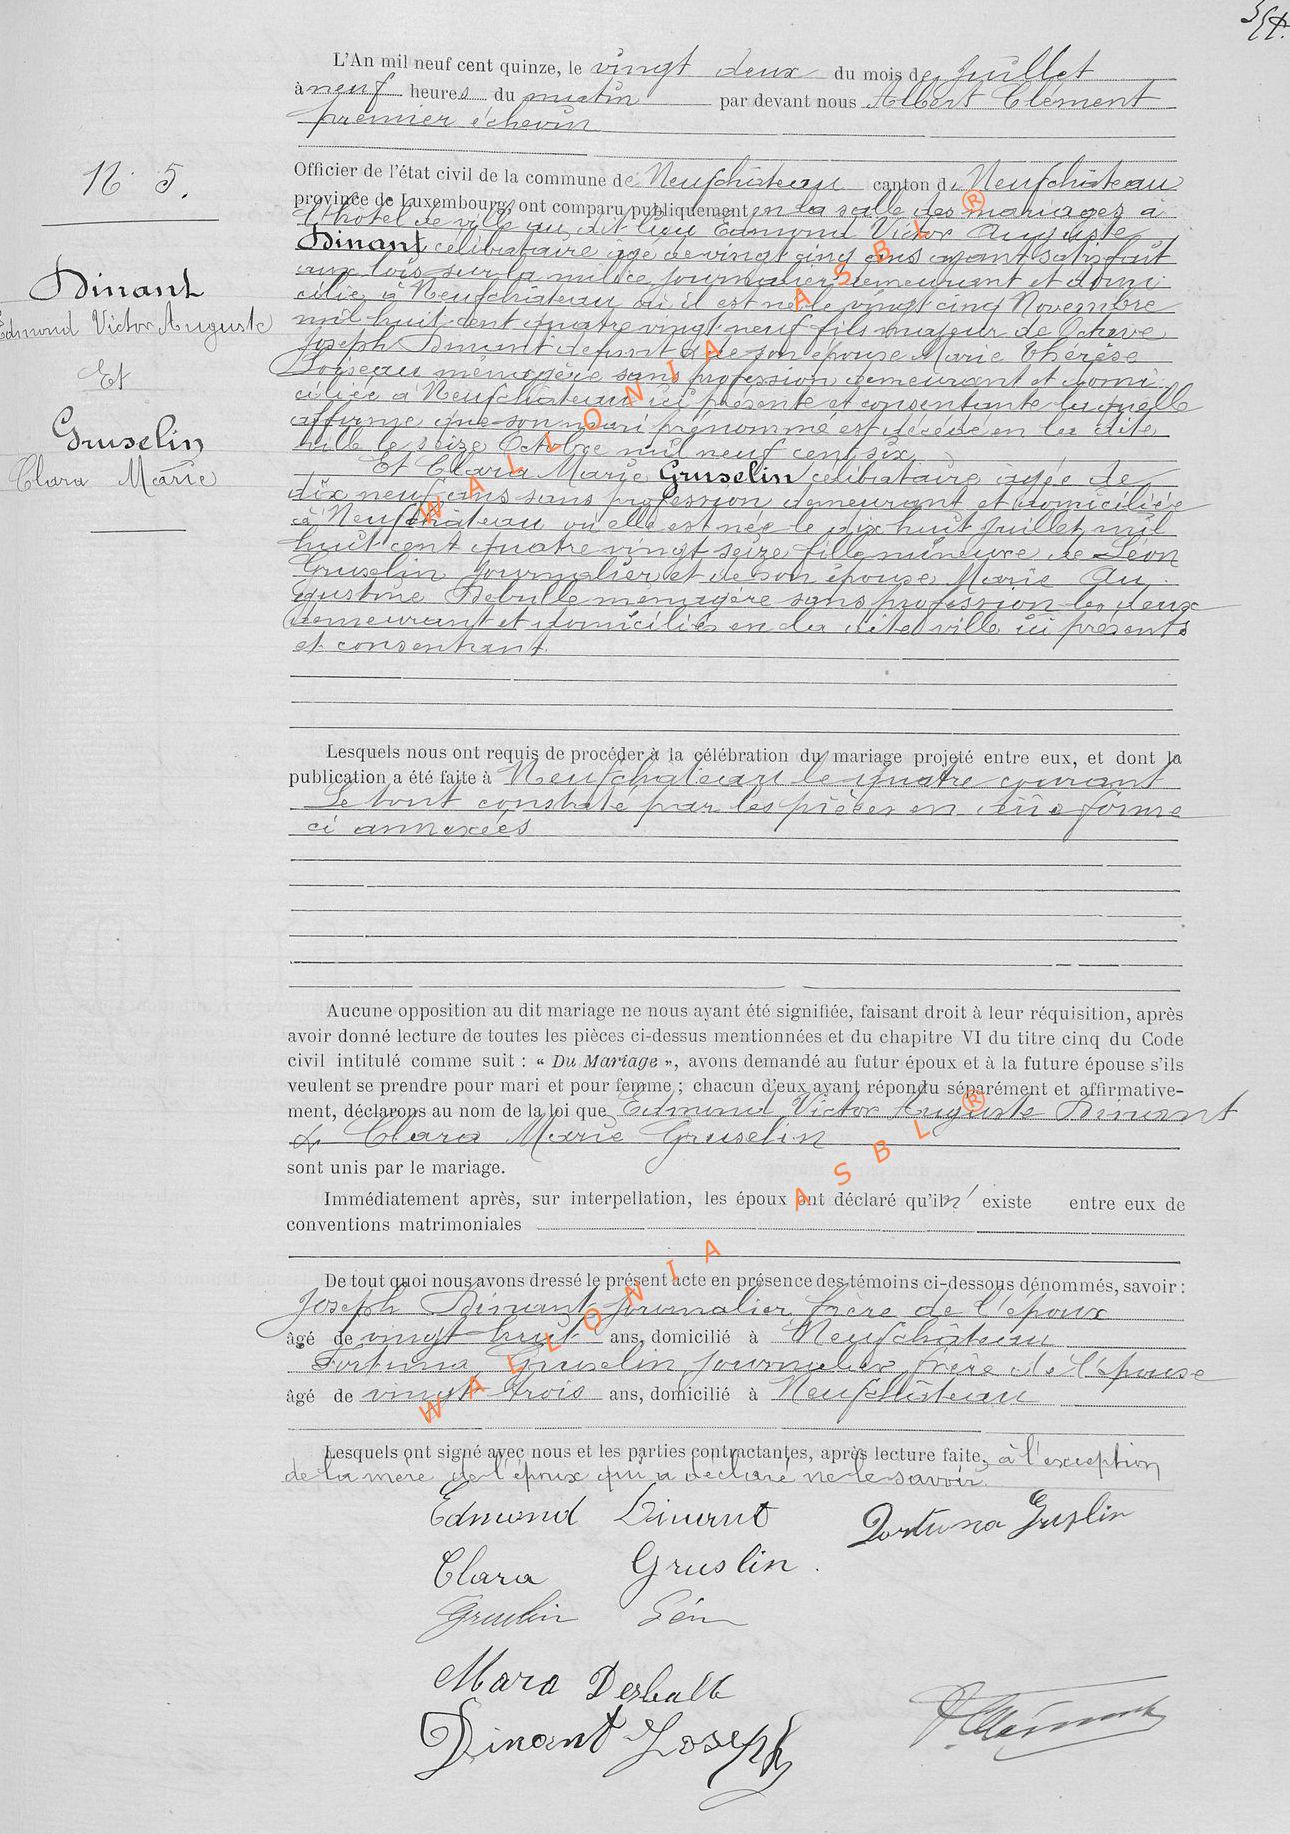 L'An mil neuf cent quinze, le vingt deux du mois de Juillet
à neuf heures du matin par devant nous Albert Clément
premier échevin
N° 5.
Officier de l'état civil de la commune de Neufchâteau canton de Neufchâteau
province de Luxembourg, ont comparu publiquement en la salle des mariages à
l'hôtel de ville au dit lieu Edmond Victor Auguste
Dinant célibataire âgé de vingt cinq ans ayant satisfait
aux lois sur la milice journalier demeurant et domi
cilié à Neufchâteau où il est né le vingt cinq Novembre
mil huit cent quatre vingt neuf fils majeur de Octave
Joseph Dinant defunt et de son épouse Marie Thérèse
Loiseau ménagère sans profession demeurant et domi
ciliée à Neufchâteau ici présente et consentante laquelle
affirme que son mari prénommé est décédé en la dite
ville le seize Octobre mil neuf cent six
Et Clara Marie Gruselin célibataire agée de
dix neuf ans sans profession demeurant et domiciliée
à Neufchâteau où elle est née le dix huit Juillet mil
huit cent quatre vingt seize fille mineure de Léon
Gruselin journalier et de son épouse Marie Au
gustine Debulle ménagère sans profession les deux
demeurant et domiciliés en la dite ville ici présents
et consentant
Dinant
Edmond Victor Auguste
Et
Gruselin
Clara Marie
Lesquels nous ont requis de procéder à la célébration du mariage projeté entre eux, et dont la
publication a été faite à Neufchateau le quatre courant
Le tout constaté par les pièces en due forme
ci annexées
Aucune opposition au dit mariage ne nous ayant été signifiée, faisant droit à leur réquisition, après
avoir donné lecture de toutes les pièces ci-dessus mentionnées et du chapitre VI du titre cinq du Code
civil intitulé comme suit : « Du Mariage », avons demandé au futur époux et à la future épouse s'ils
veulent se prendre pour mari et pour femme ; chacun d'eux ayant répondu séparément et affirmative-
ment, déclarons au nom de la loi que Edmond Victor Auguste Dinant
& Clara Marie Gruselin
sont unis par le mariage.
Immédiatement après, sur interpellation, les époux ont déclaré qu'il n' existe entre eux de
conventions matrimoniales
De tout quoi nous avons dressé le présent acte en présence des témoins ci-dessous dénommés, savoir :
Joseph Dinant journalier frère de l'époux
âgé de vingt huit ans, domicilié à Neufchâteau
Fortuna Gruselin journalier frère de l'épouse
âgé de vingt trois ans, domicilié à Neufchâteau
Lesquels ont signé avec nous et les parties contractantes, après lecture faite, à l'exception
de la mère de l'époux qui a déclaré ne le savoir.
Edmond Dinant
Fortuna Gruslin
Clara Gruslin.
Gruslin Léon
Mara Desball
Dinant Joseph
A. Clément
WALLONIA ASBL ®
WALLONIA ASBL ®